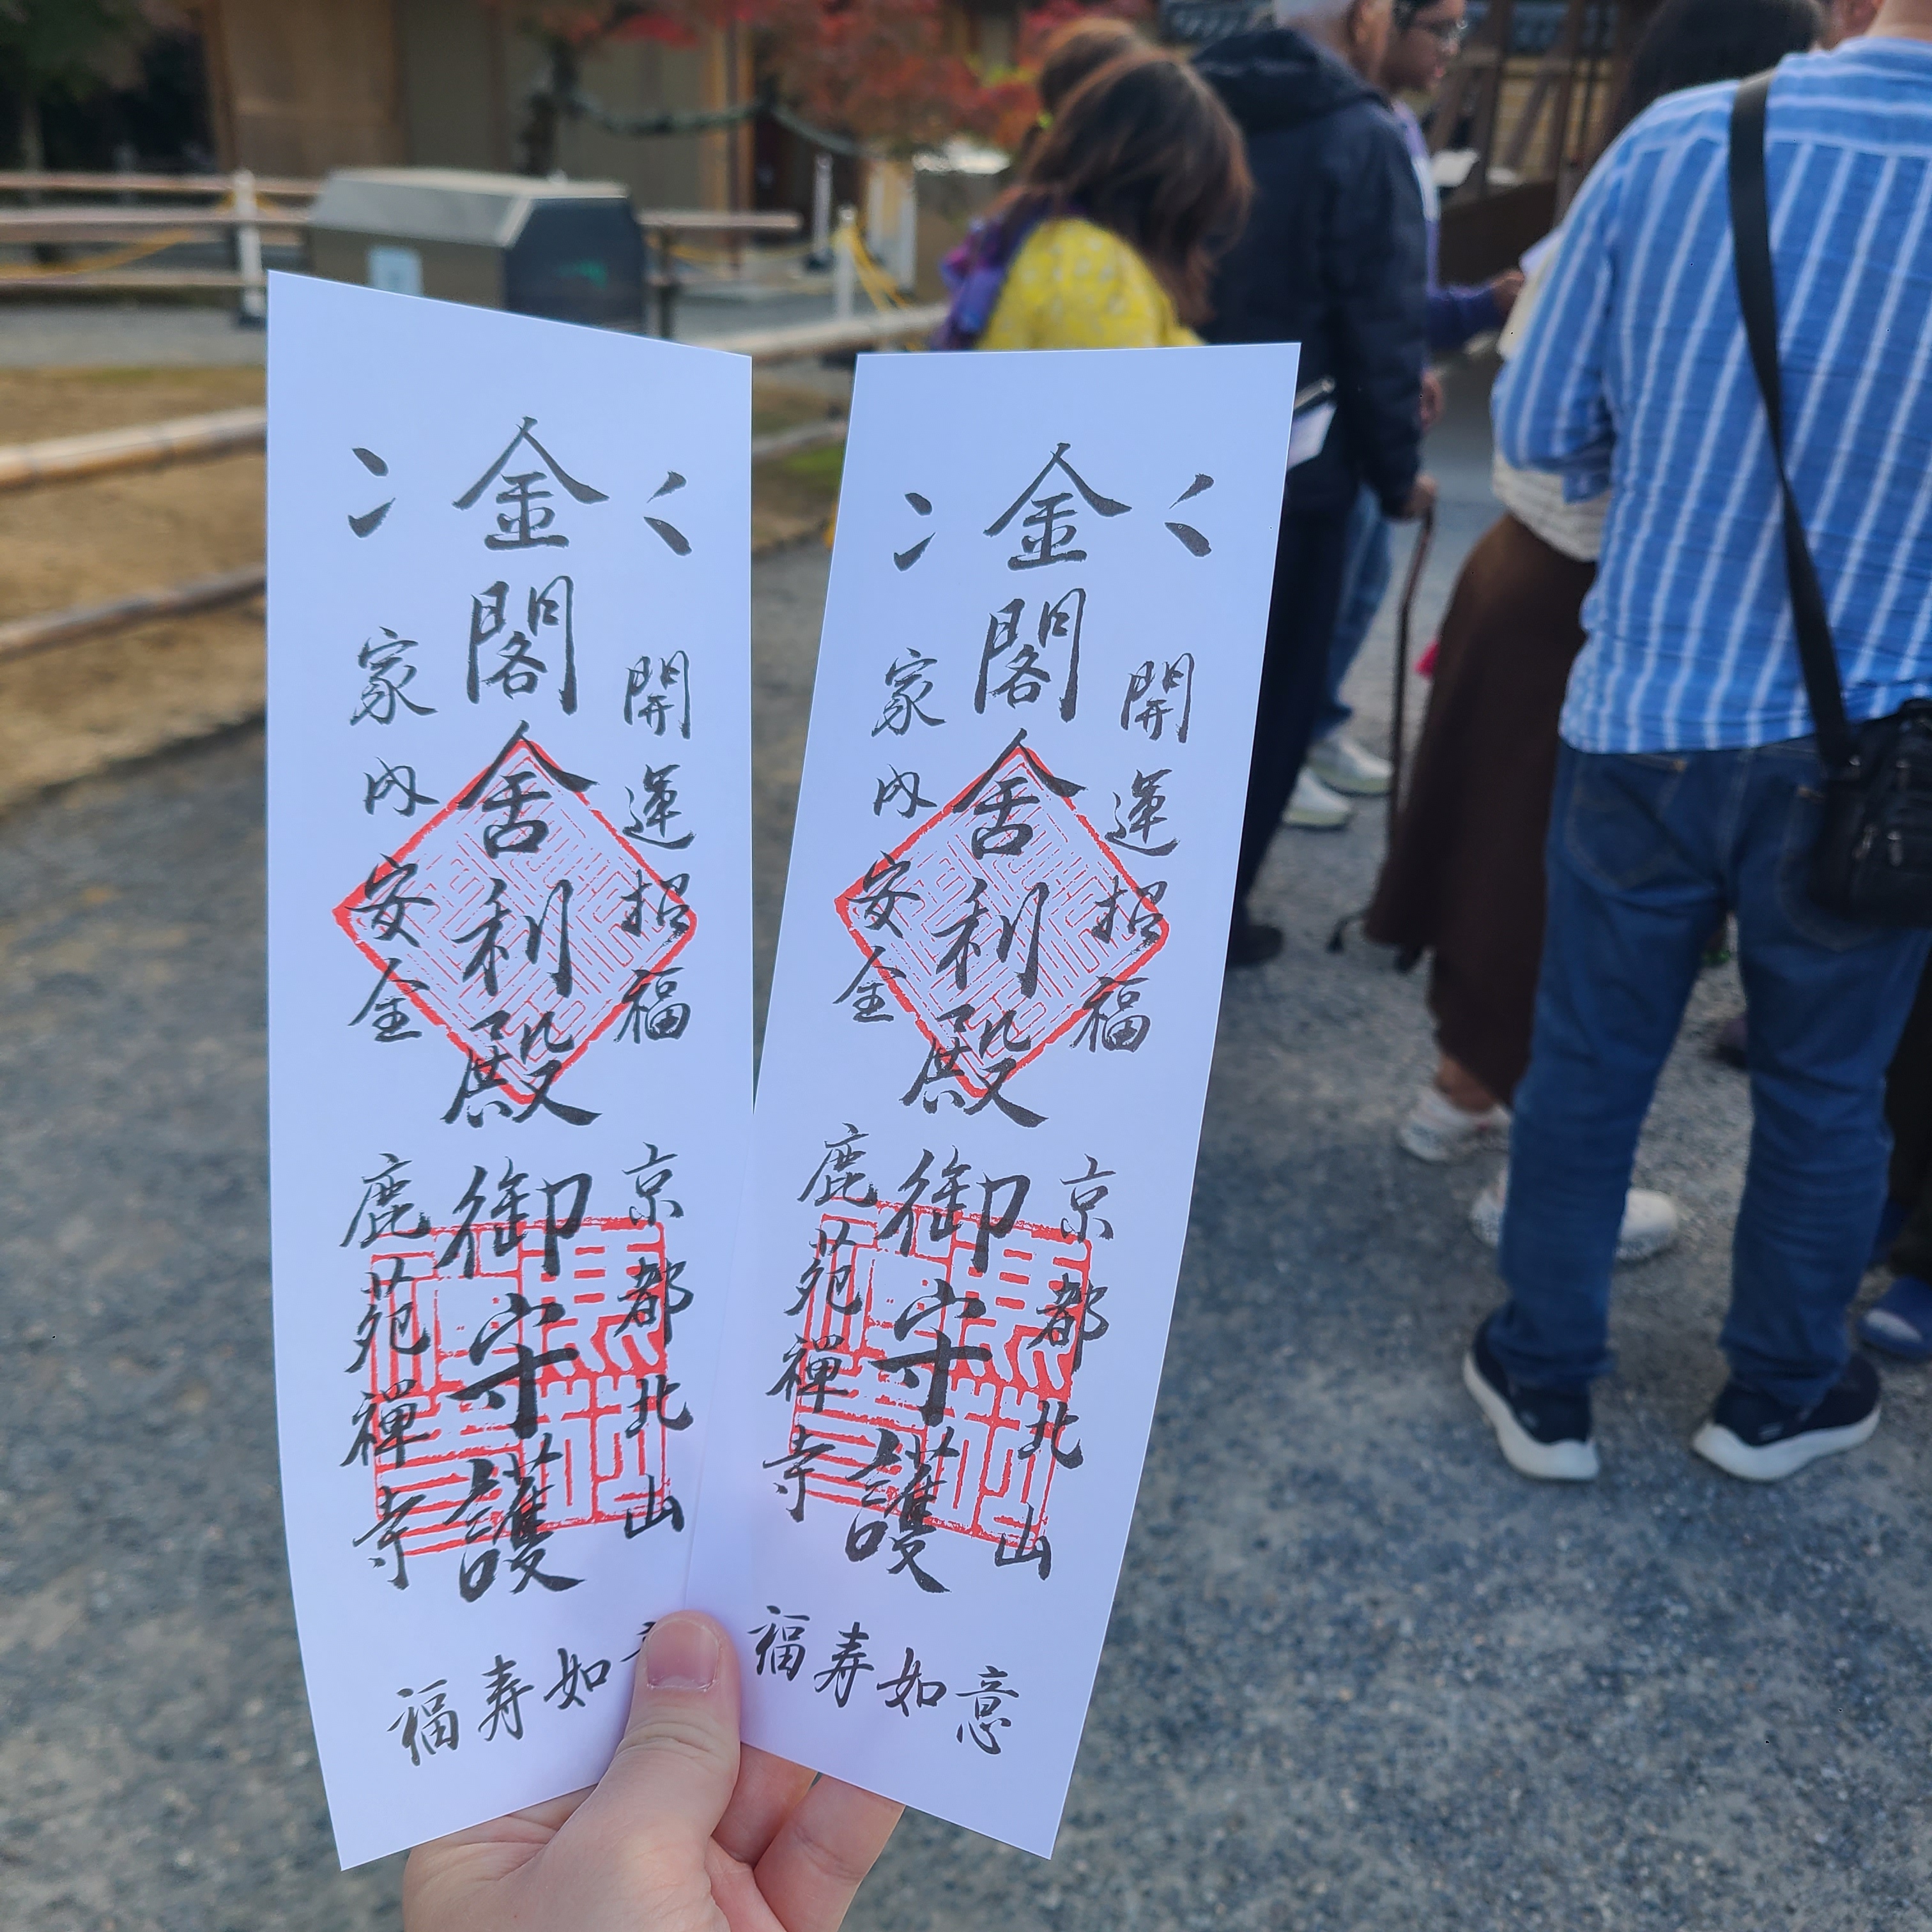 金閣舍利殿御守護
開運招福
家内安全
京都北山
鹿苑禅寺
福寿如
金閣舍利殿御守護
開運招福
家内安全
京都北山
鹿苑禅寺
福寿如意